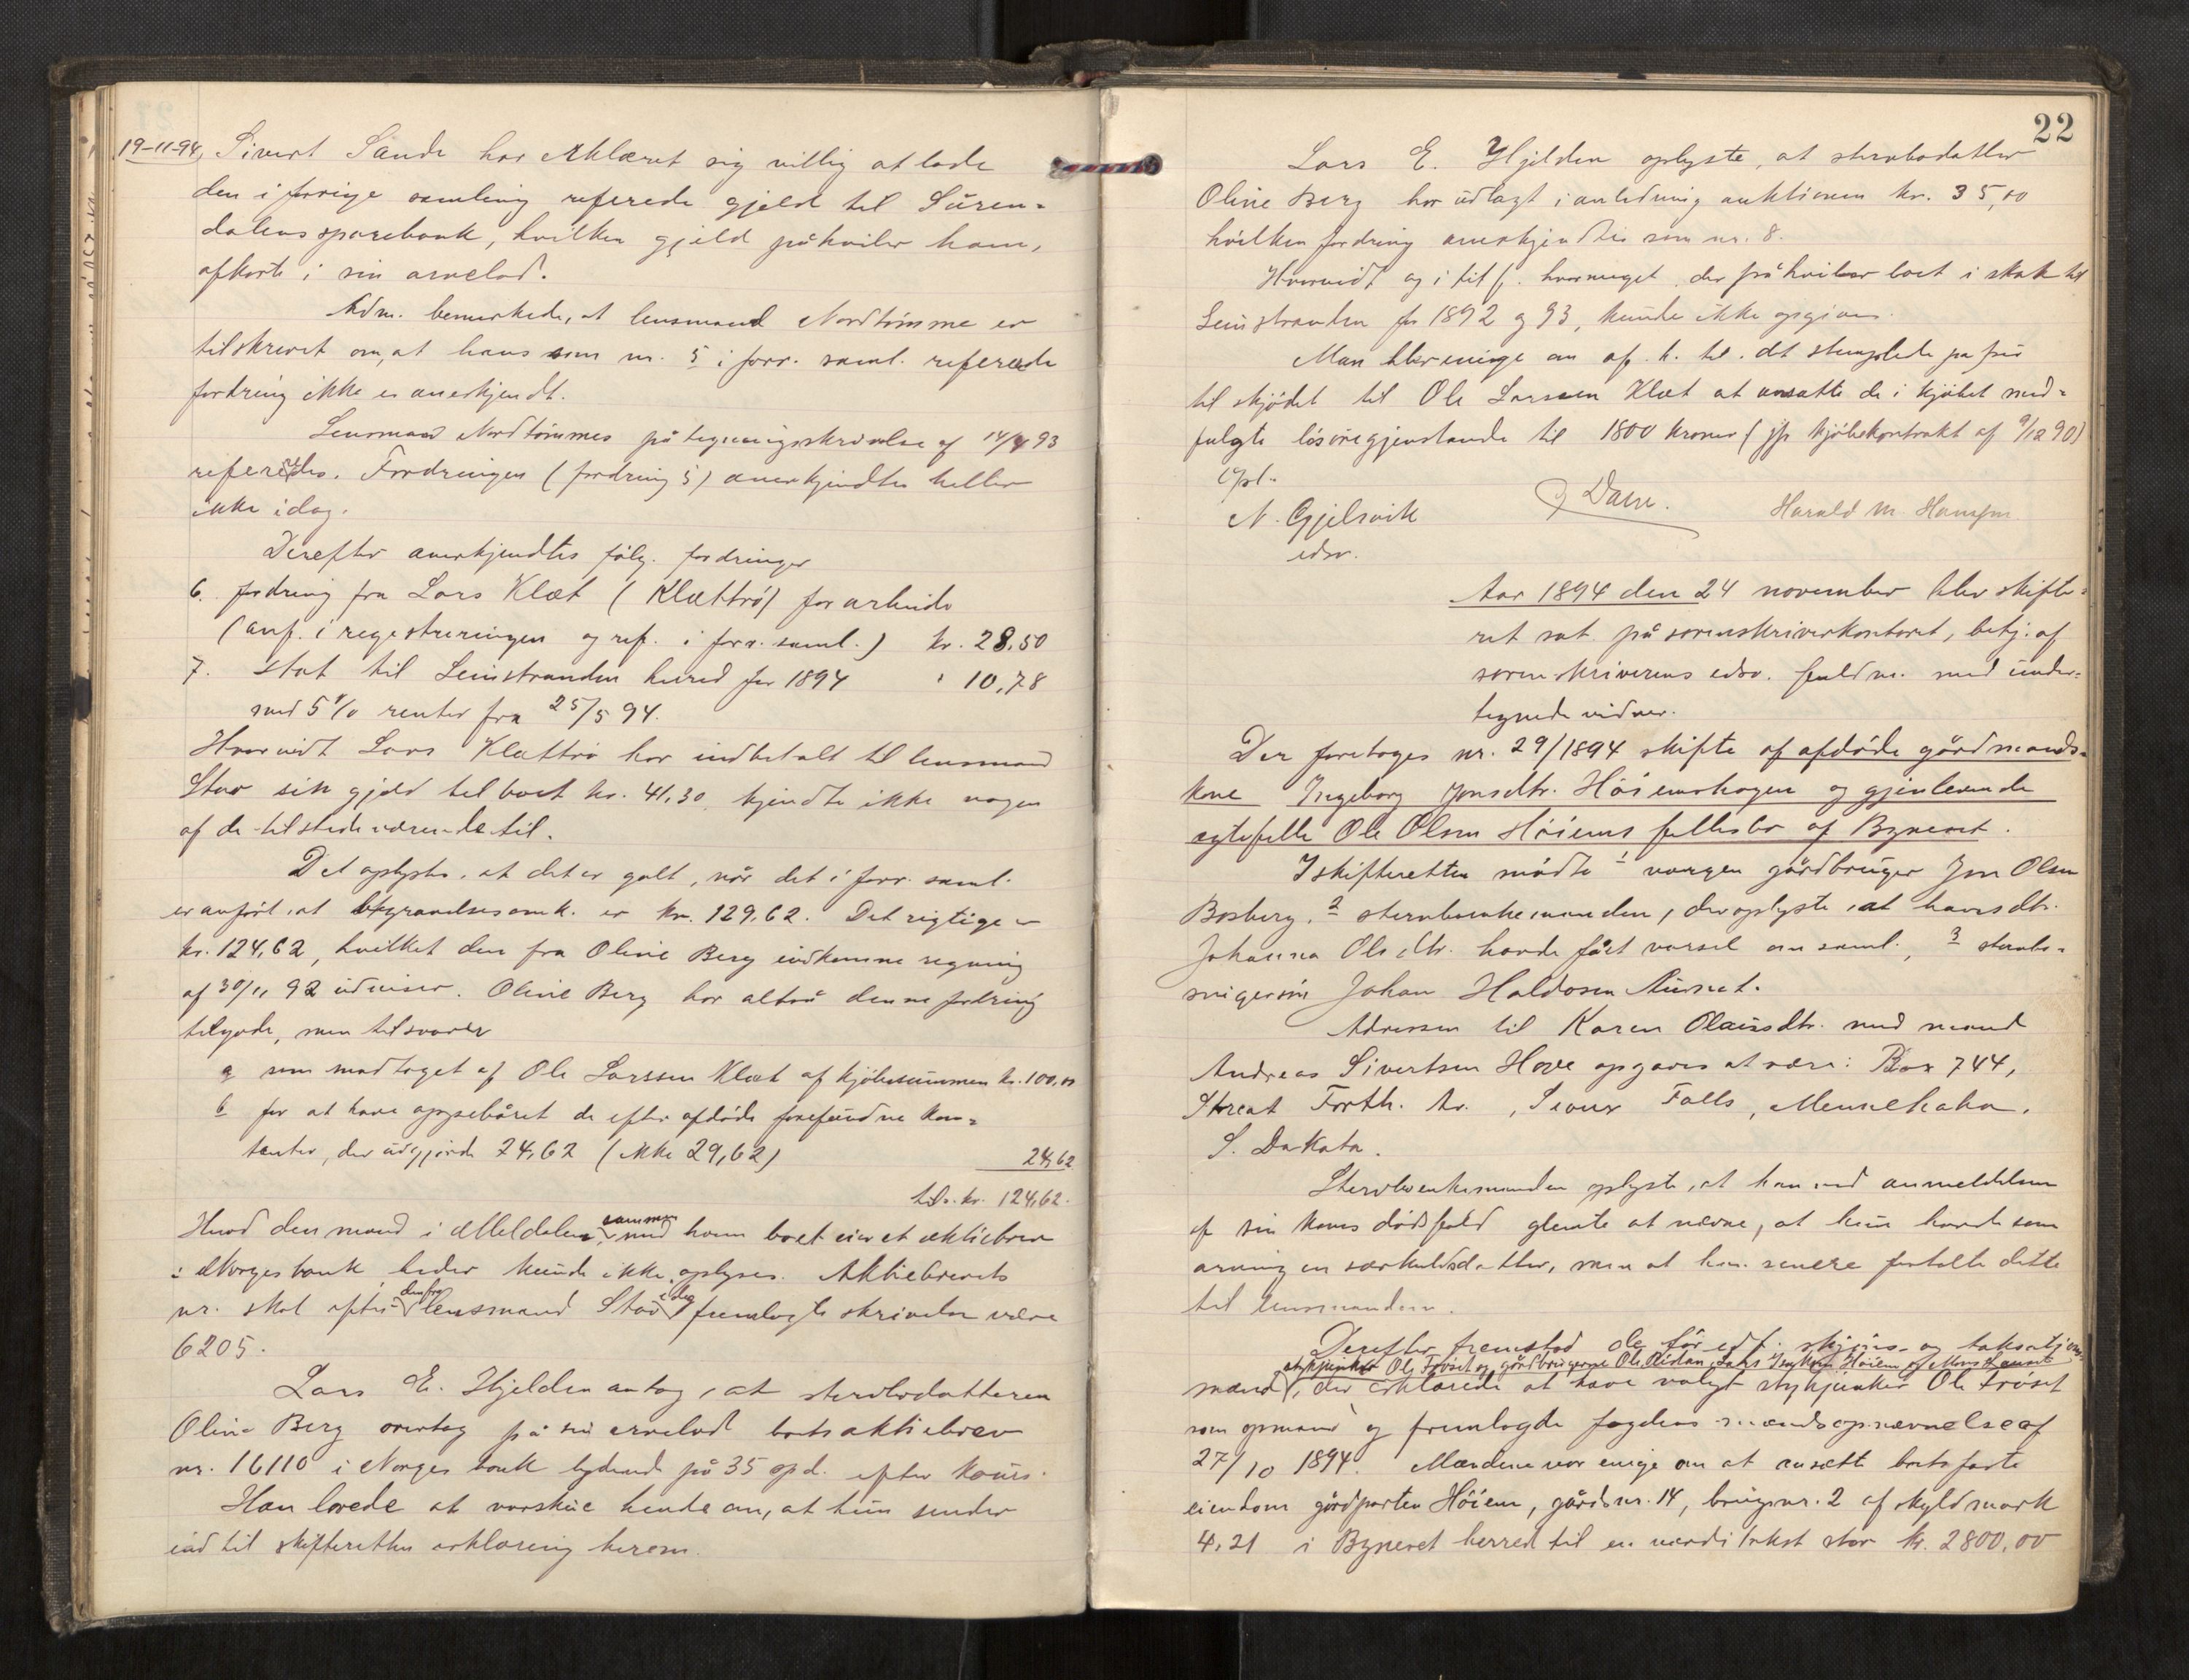 19-11-94, Sivert Sande har erklæret sig villig at lade
den i forrige samling refererede gjeld til Süren-
dalens sparebank, hvilken gjeld påhviler ham,
afkorte i sin arvelod.
Adm. bemerkede, at lensmand Nordtömme er
tilskrevet om, at hans som nr. 5 i forr. saml. refererede
fordring ikke er anerkjendt.
Lensmand Nordtömmes påtegningsskrivelse af 14/4 93
refereredes. Fordringen (fordring 5) anerkjendtes heller
ikke idag.
Derefter anerkjendtes fölg. fordringer
6. fordring fra Lars Klæt (Klættrö) for arbeide
(anf. i registreringen og ref. i forr. saml.) kr. 28,50
7. skat til Leinstranden herred for 1894 " 10,78
med 5% renter fra 25/5 94.
Hvorvidt Lars Klættrö har indbetalt til lensmand
Stav sin gjeld til boet kr. 41,30, kjendte ikke nogen
af de tilstedeværende til.
Det oplystes, at det er galt, når det i forr. saml.
er anfört, at begravelsesomk. er kr. 129,62. Det rigtige er
kr. 124,62, hvilket den fra Oline Berg indkomne regning
af 30/11 92 udviser. Oline Berg har altså denne fordring
tilgode, men tilsvarer
a som modtaget af Ole Larssen Klæt af kjöbesummen kr. 100,00
b for at have oppebåret de efter afdöde forefundne kon-
tanter, der udgjorde 24,62 (ikke 29,62) 24,62
tils. kr. 124,62.
Hvad den mand i Meldalen, sammen med hvem boet eier et aktiebrev
i Norges bank heder kunde ikke oplyses. Aktiebrevets
nr. skal efter den fra lensmand Stav idag fremlagte skrivelse være
6205.
Lars E. Hjelden antog, at stervbodatteren
Oline Berg overtog på sin arvelod boets aktiebrev
nr. 16110 i Norges bank lydende på 35 spd. efter kurs.
Han lovede at varskue hende om, at hun sender
ind til skifteretten erklæring herom.
22
Lars E. Hjelden oplyste, at stervbodatter
Oline Berg har udlagt i anledning auktionen kr. 35,00
hvilken fordring anerkjendtes som nr. 8.
Hvorvidt og i tilf. hvormeget der påhviler boet i skat til
Leinstranden for 1892 og 93, kunde ikke opgives.
Man blev enige om af h. til det stemplede papir
til skjödet til Ole Larssen Klæt at ansætte de i kjöbet med-
fulgte lösöregjenstande til 1800 kroner (jfr kjöbekontrakt af 9/12 90)
Opl.
N. Gjelsvik
edsv.
Harald M. Hansen
Aar 1894 den 24 november blev skifte-
ret sat på sorenskriverkontoret, betj. af
sorenskriverens edsv. fuldm. med under-
tegnede vidner.
Der foretoges nr. 29/1894 skifte af afdöde gårdmands-
kone Ingeborg Jonsdtr. Höiemshagen og gjenlevende
egtefelle Ole Olsen Höiems fellesbo af Byneset.
I skifteretten mödte 1 vergen gårdbruger Jon Olsen
Bosberg, 2 stervboenkemanden, der oplyste, at hans dtr.
Johanna Olsdtr. havde fået varsel om saml., 3 stervbo-
svigersön Johan Haldosen
Adressen til Karen Olausdtr. med mand
Andreas Sivertsen Hove opgaves at være: Box 744,
Streat Forth. Av., Sioux Falls, Mennehaha.
S. Dakota.
Stervboenkemanden oplyste, at han ved anmeldelsen
af sin kones dödsfald glemte at nævne, at hun havde som
arving en særkuldsdatter, men at han senere fortalte dette
til lensmanden.
Derefter fremstod de för edf. skjöns- og taksations-
stykjunker Ole Fröset og gårdbrugerne Ole Ristan, Lars Höiem og
mænd, der erklærede at have valgt stykjunker Ole Fröset
som opmand og fremlagde fogdens mændsopnævnelse af
27/10 1894. Mændene var enige om at ansætte boets faste
eiendom gårdparten Höiem, gårdsnr. 14, brugsnr. 2 af skyld mark
4,21 i Byneset herred til en værdi lakst stor kr. 2800,00